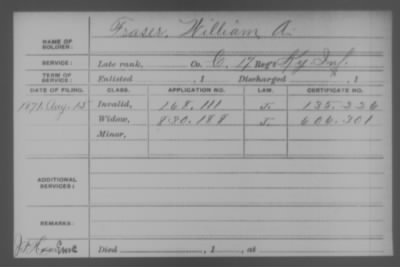 Fraser, William A.
NAME OF SOLDIER:
SERVICE: Late rank, Co. C, 17 Reg't Ky Inf.
TERM OF SERVICE: Enlisted , 1 Discharged , 1
DATE OF FILING. CLASS. APPLICATION NO. LAW. CERTIFICATE NO.
1871, Aug. 15 Invalid, 168.111 135.336
Widow, 830.188 606.301
Minor,
ADDITIONAL SERVICES:
REMARKS:
Died , 1 , at